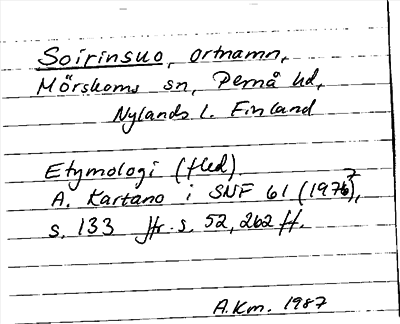 Soirinsuo, ortnamn,
Mörskoms sn, Pernå hd,
Nylands l. Finland
Etymologi (fled).
A. Kartano i SNF 61 (1976),
s. 133 jfr s. 52, 262 ff.
A.Km. 1987